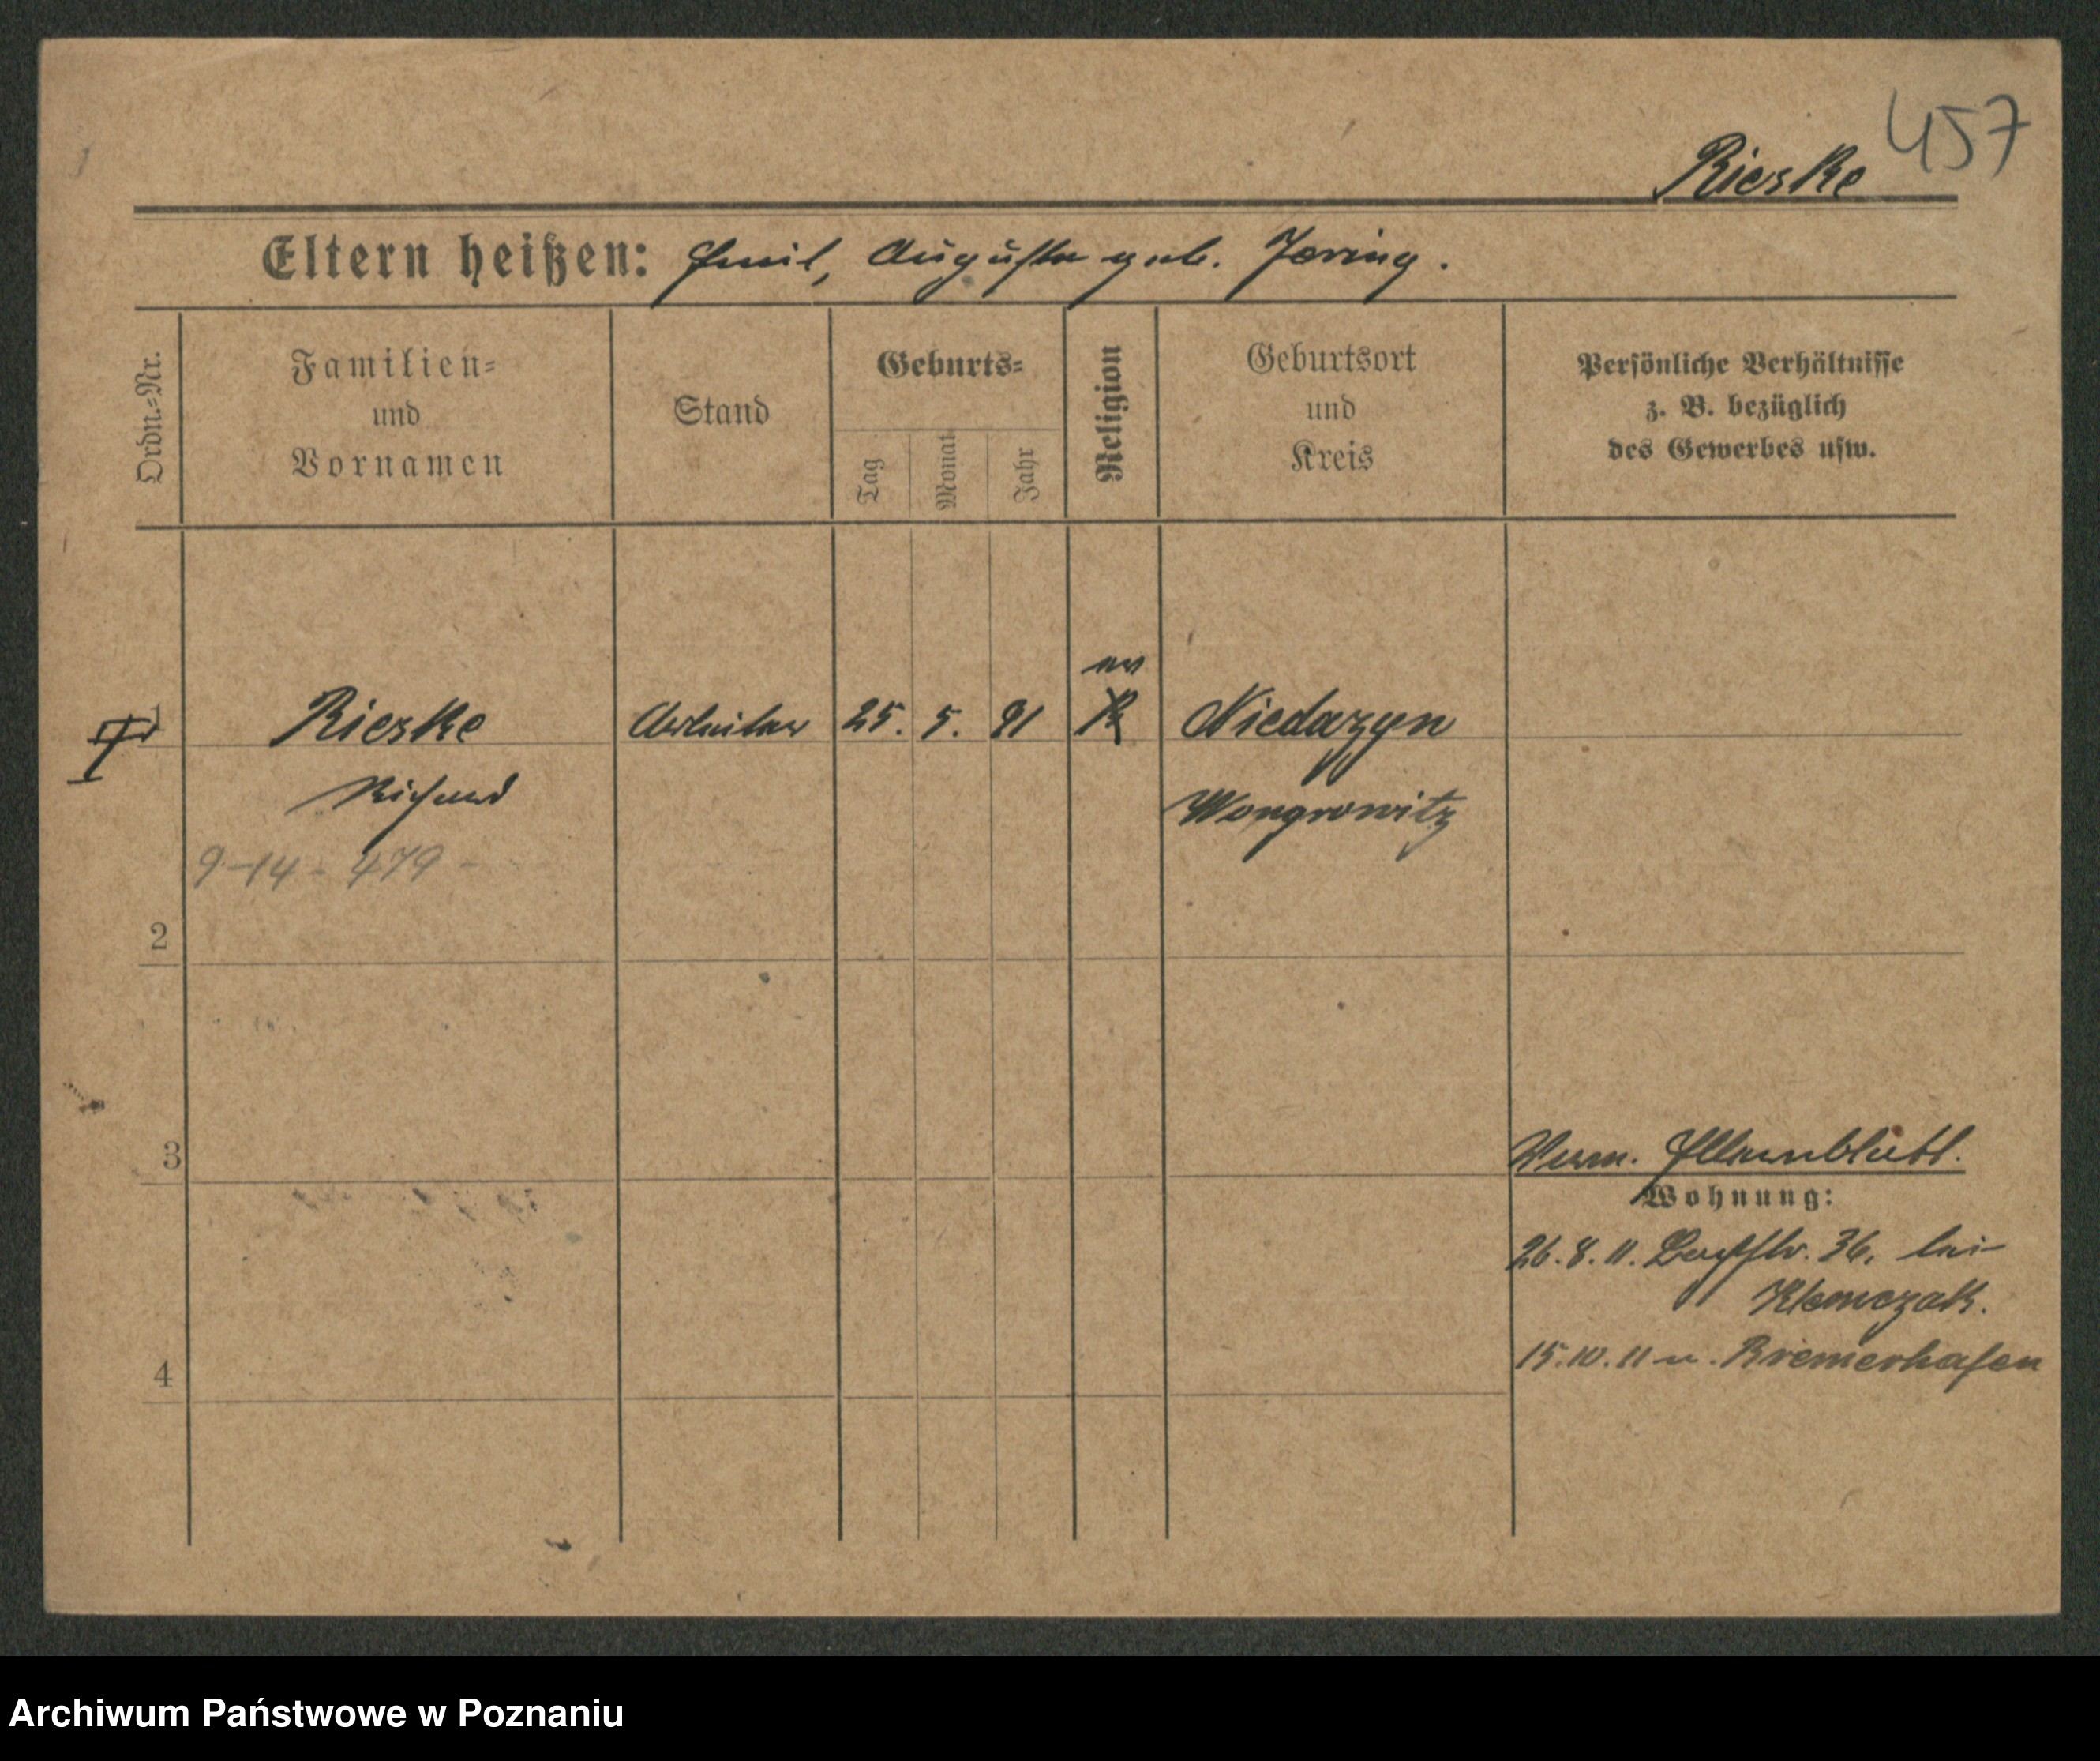 457
Rieske
Eltern heißen: Emil, Auguste geb. Jering.
Ordn.-Nr.
Familien- und Vornamen
Stand
Geburts-
Tag
Monat
Jahr
Religion
Geburtsort und Kreis
Persönliche Verhältnisse z. B. bezüglich des Gewerbes usw.
ev
1 Rieske Arbeiter 25. 5. 91 K Niedazyn
Richard Wongrowitz
9-14- 479 -
2
3
Wohnung:
26. 8. 11. 36, bei
15. 10. 11 n. Bremerhafen
4
Archiwum Państwowe w Poznaniu